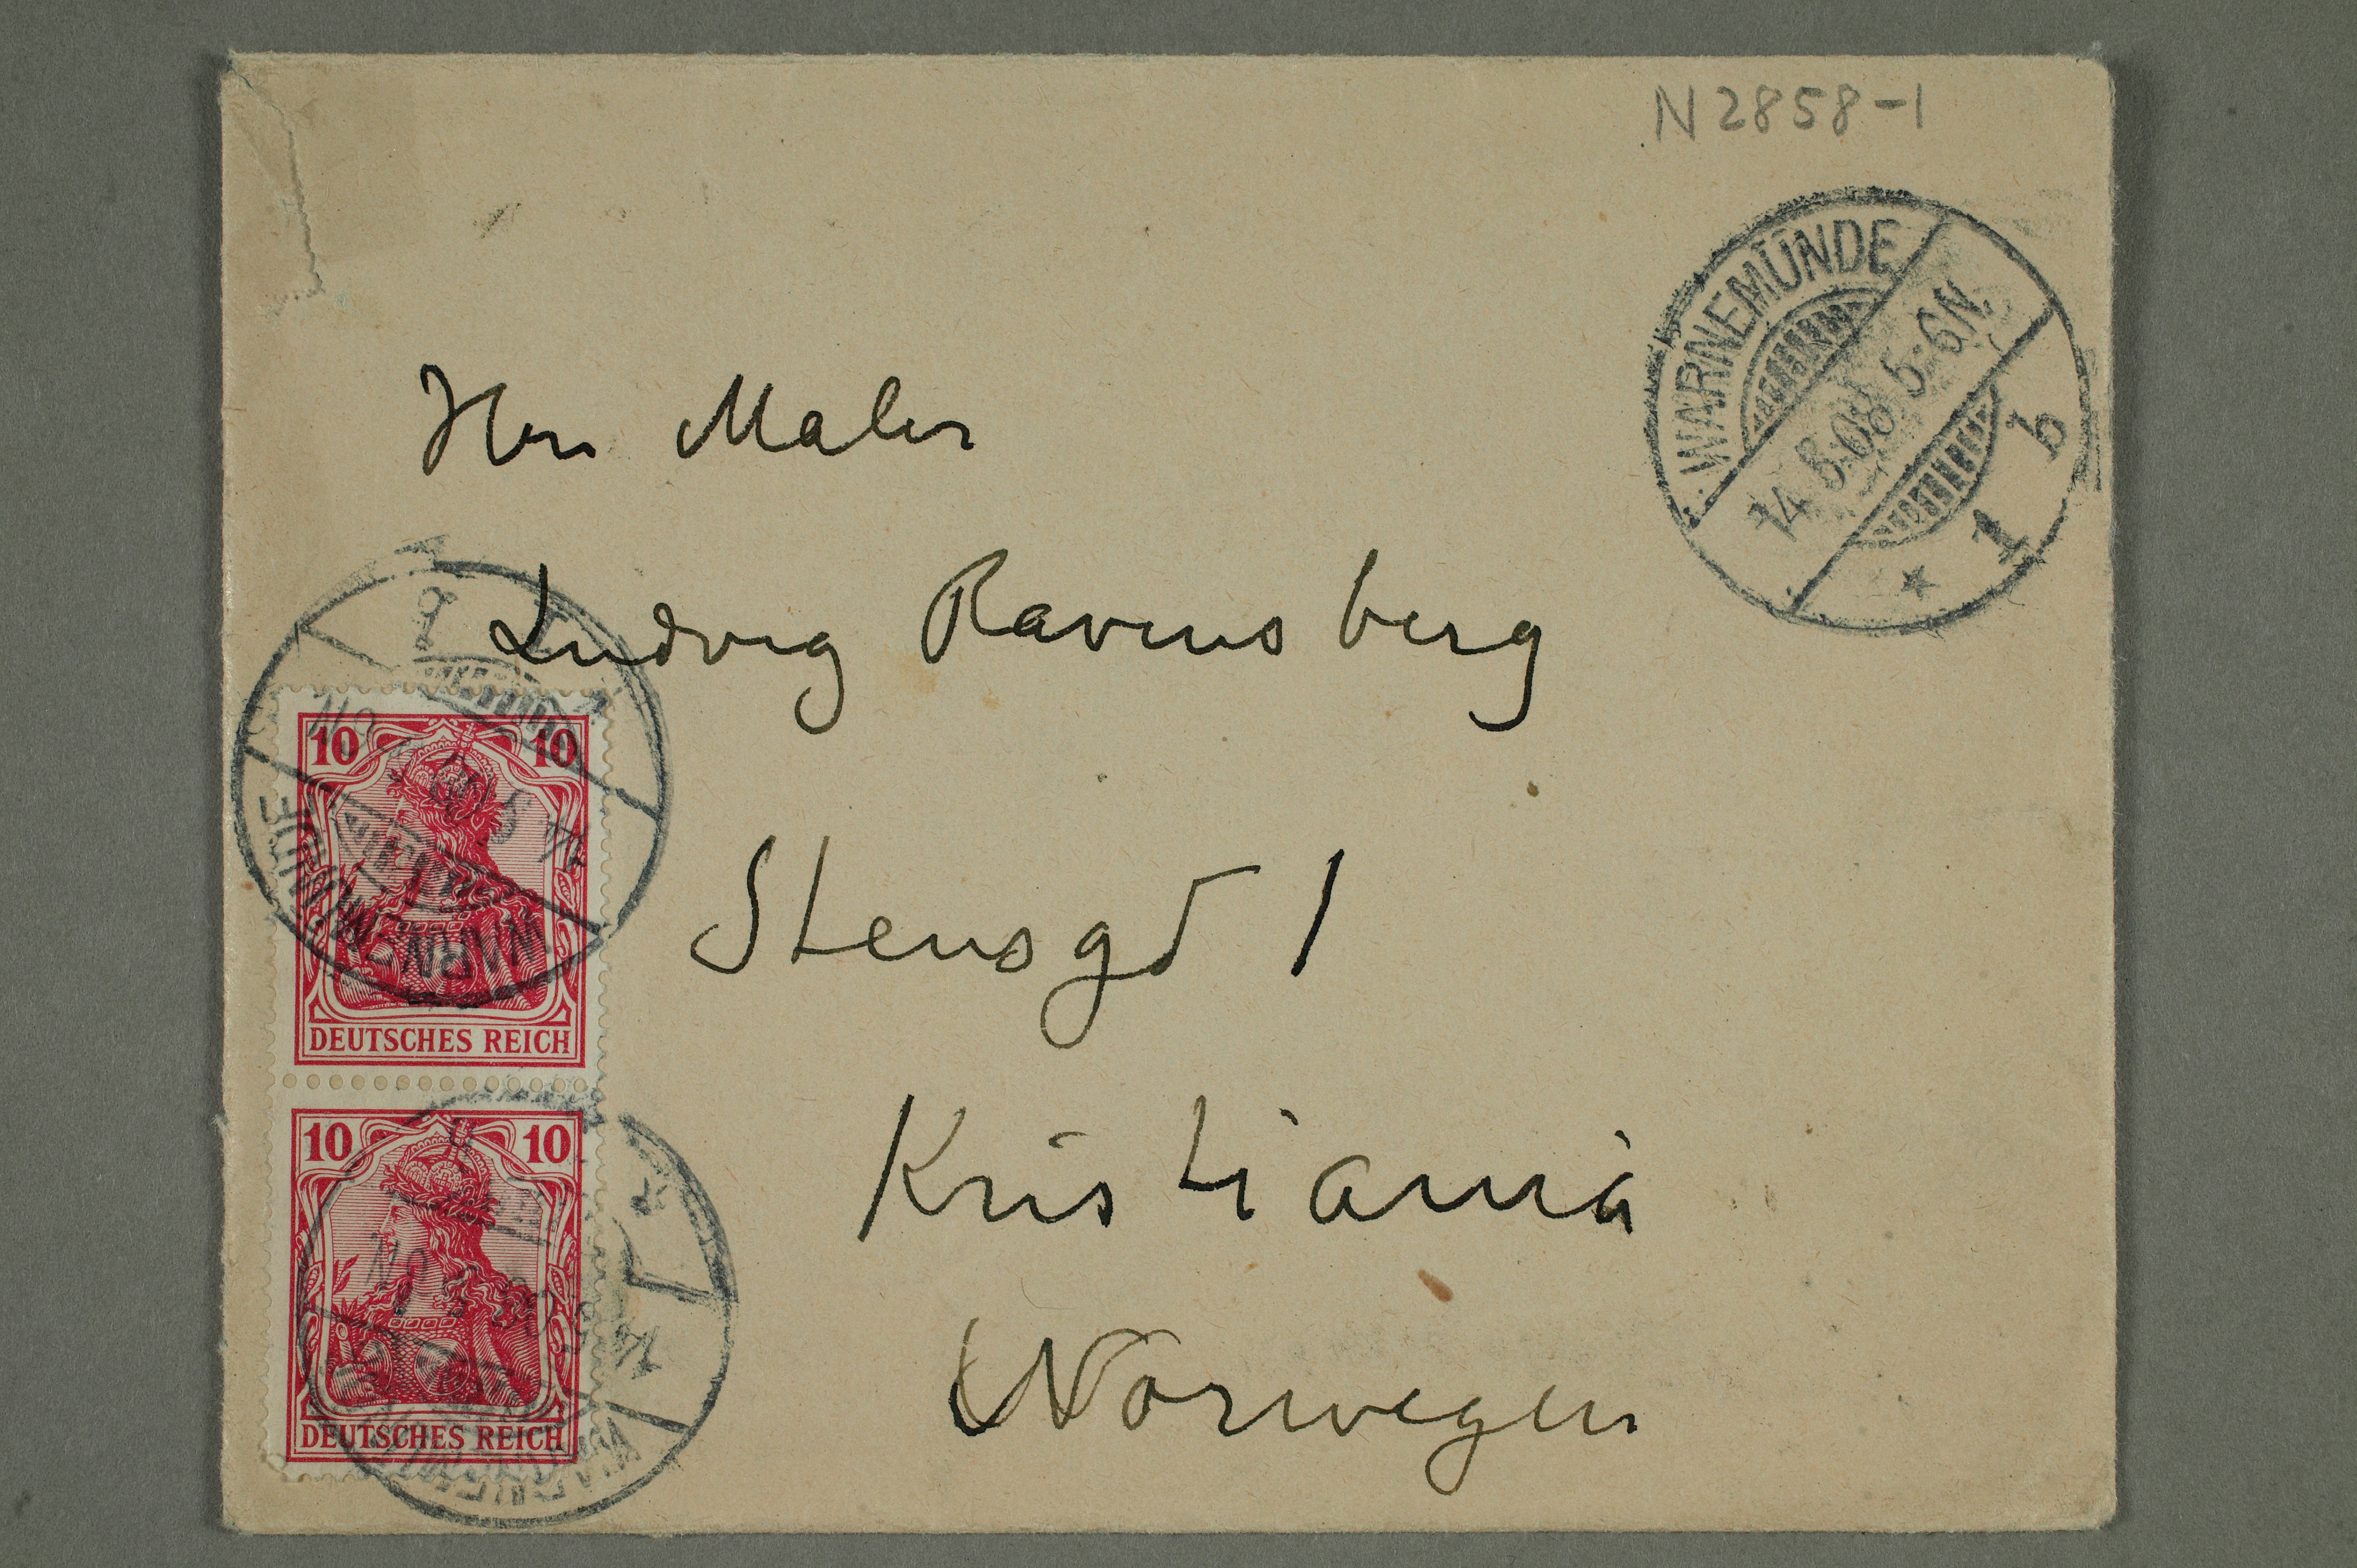 N 2858-1
WARNEMÜNDE
14 5.08 5-6N.
1 b
Herr Maler
Ludvig Ravensberg
Stensgd 1
Kristiania
Norwegen
10 10
DEUTSCHES REICH
WARNEMÜNDE
10 10
DEUTSCHES REICH